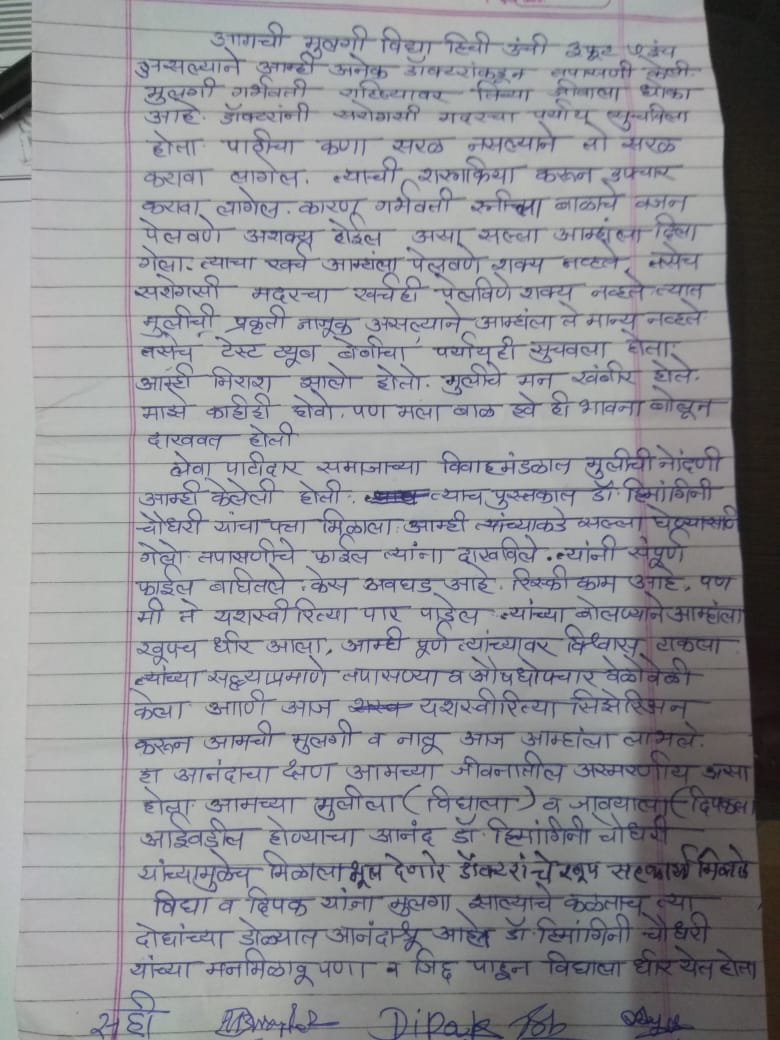 आमची मुलगी विद्या हिची उंची ३ फूट
असल्याने आम्ही अनेक डॉक्टरांकडून तपासणी केली.
मुलगी गर्भवती राहिल्यावर तिच्या जीवाला धोका
आहे. डॉक्टरांनी सरोगसी मदरचा पर्याय सुचविला
होता. पाठीचा कणा सरळ नसल्याने तो सरळ
करावा लागेल. त्याची शस्त्रक्रिया करून उपचार
करावा लागेल. कारण गर्भवती स्त्रीला बाळाचे वजन
पेलवणे अशक्य होईल असा सल्ला आम्हांला दिला
गेला. त्याचा खर्च आम्हांला पेलवणे शक्य नव्हते, तसेच
सरोगसी मदरचा खर्चही पेलविणे शक्य नव्हते त्यात
मुलीची प्रकृती नाजूक असल्याने आम्हांला ते मान्य नव्हते
तसेच टेस्ट ट्यूब बेबीचा पर्यायही सुचवला होता.
आम्ही निराश झालो होतो. मुलीचे मन खंबीर होते.
माझे काहीही होवो. पण मला बाळ हवे ही भावना बोलून
दाखवत होती
लेवा पाटीदार समाजाच्या विवाहमंडळात मुलीची नोंदणी
आम्ही केलेली होती. त्याच पुस्तकात डॉ. हिमांगिनी
चौधरी यांचा पत्ता मिळाला. आम्ही त्यांच्याकडे सल्ला घेण्यासाठी
गेलो. तपासणीचे फाईल त्यांना दाखविले. त्यांनी संपूर्ण
फाईल बघितले. केस अवघड आहे. रिस्की काम आहे. पण
मी ते यशस्वीरित्या पार पाडेल त्यांच्या बोलण्याने आम्हांला
खूपच धीर आला. आम्ही पूर्ण त्यांच्यावर विश्वास टाकला
त्यांच्या सल्ल्याप्रमाणे तपासण्या व औषधोपचार वेळोवेळी
केला आणि आज यशस्वीरित्या सिझेरिअन
करून आमची मुलगी व नातू आज आम्हांला लाभले.
हा आनंदाचा क्षण आमच्या जीवनातील अस्मरणीय असा
होता. आमच्या मुलीला (विद्याला) व जावयाला (दिपकला
आईवडील होण्याचा आनंद डॉ. हिमांगिनी चौधरी
यांच्यामुळेच मिळाला भूल देणारे डॉक्टरांचे खूप सहकार्य मिळाले
विद्या व दिपक यांना मुलगा झाल्याचे कळताच त्या
दोघांच्या डोळ्यात आनंदाश्रू आहेत डॉ. हिमांगिनी चौधरी
यांच्या मनमिळावू पणा व जिद्द पाहून विद्याला धीर येत होता
सही Dipak